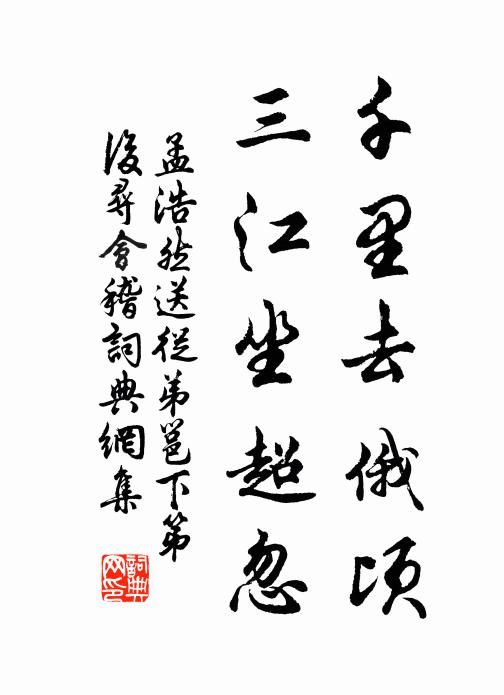 千里去俄頃
三江坐超忽
孟浩然送從弟邕下第
後尋會稽詞典網集
詞典
网印